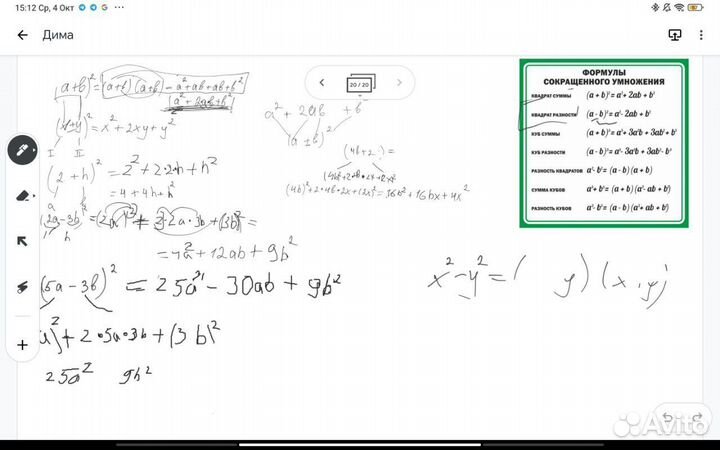 15:12 Ср, 4 Окт
Дима
20 / 20
(a+b)² = (a+b)(a+b) = a²+ab+ab+b²
a²+2ab+b²
a² + 2ab + b²
(a+b)²
(x+y)² = x²+2xy+y²
I II
(4b+2
(2+h)² = 2²+2·2·h+h²
= 4+4h+h²
(4b)²+2·4b·2x+(2x)² = 16b²+16bx+4x²
= 4a²+12ab+9b²
(5a-3b)² = 25a²-30ab+9b²
+2·5a·3b+(3b)²
25a² 9b²
ФОРМУЛЫ
СОКРАЩЕННОГО УМНОЖЕНИЯ
КВАДРАТ СУММЫ (a + b)²= a²+ 2ab + b²
КВАДРАТ РАЗНОСТИ (a - b)²= a²- 2ab + b²
КУБ СУММЫ (a + b)³= a³+ 3a²b + 3ab²+ b³
КУБ РАЗНОСТИ (a - b)³= a³- 3a²b + 3ab²- b³
РАЗНОСТЬ КВАДРАТОВ a²- b²= (a - b) (a + b)
СУММА КУБОВ a³+ b³= (a + b) (a²- ab + b²)
РАЗНОСТЬ КУБОВ a³- b³= (a - b) (a²+ ab + b²)
x²-y² = ( y) (x , y)
Avito